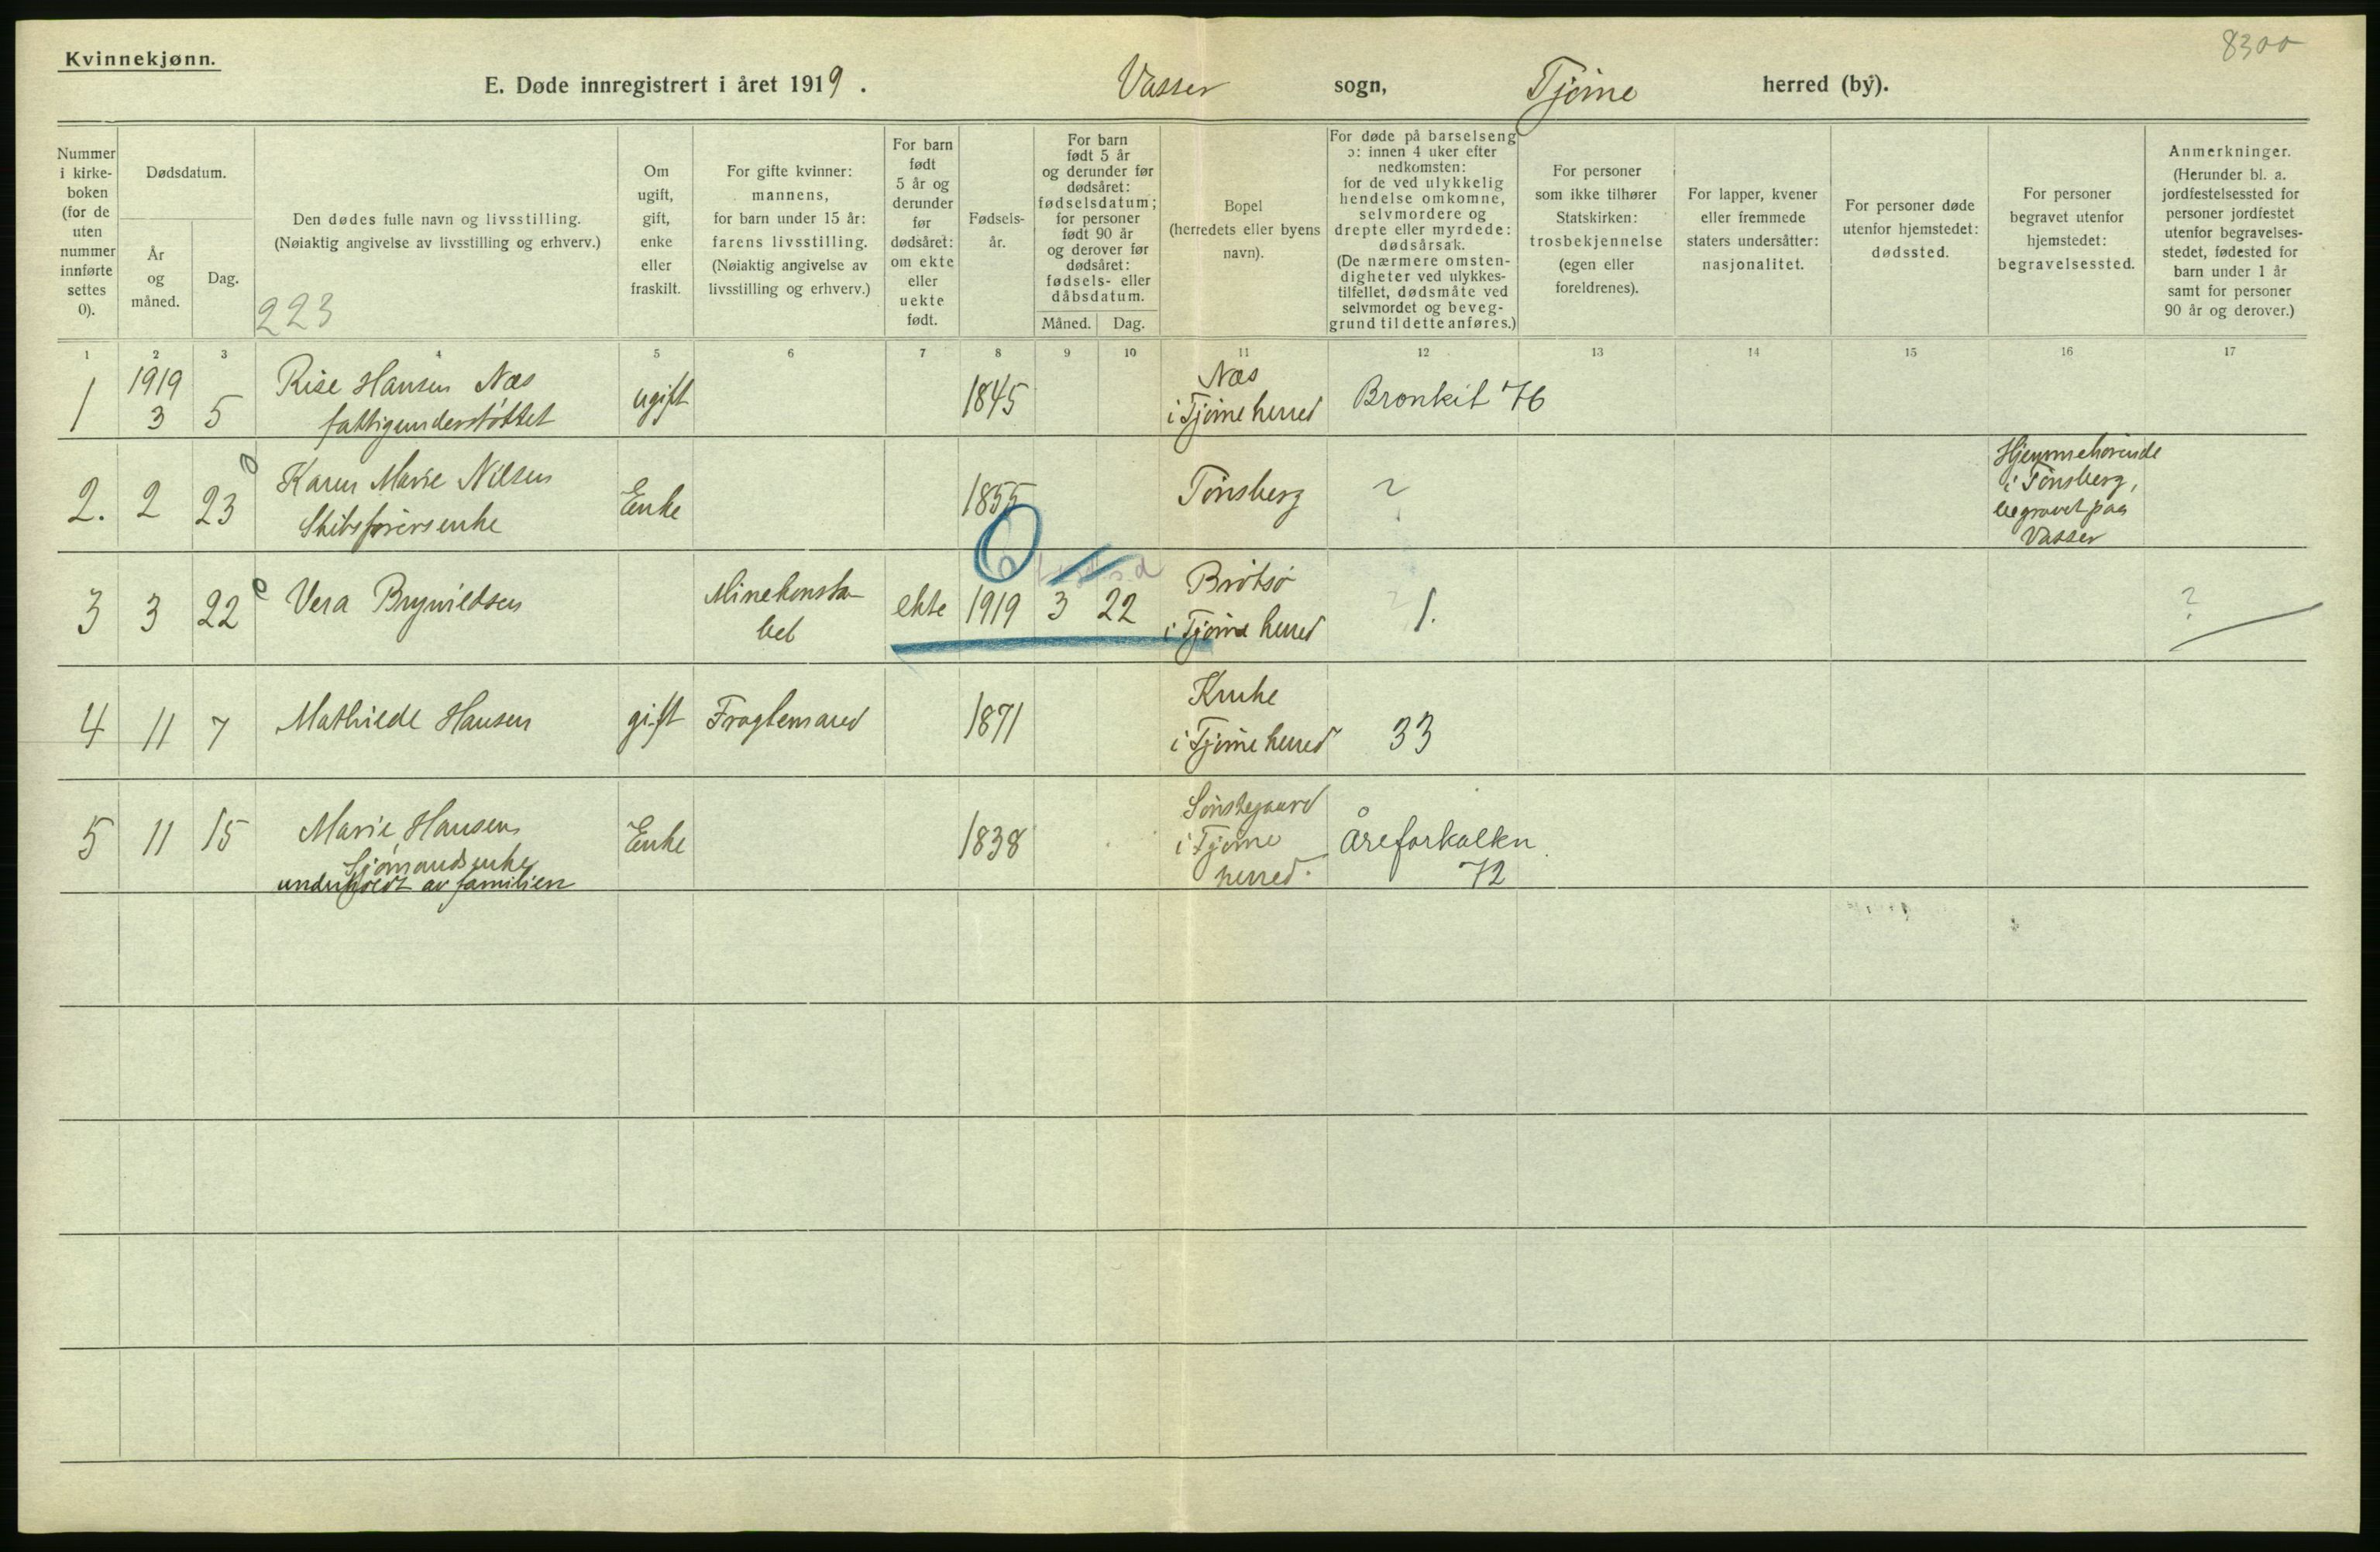 8300
Kvinnekjønn.
E. Døde innregistrert i året 1919. Vasser sogn, Tjøme herred (by).
Nummer i kirke-boken (for de uten nummer innførte settes 0).
Dødsdatum.
År og måned.
Dag.
Den dødes fulle navn og livsstilling.
(Nøiaktig angivelse av livsstilling og erhverv.)
223
Om ugift, gift, enke eller fraskilt.
For gifte kvinner: mannens, for barn under 15 år: farens livsstilling. (Nøiaktig angivelse av livsstilling og erhverv.)
For barn født 5 år og derunder før dødsåret: om ekte eller uekte født.
Fødsels-år.
For barn født 5 år og derunder før dødsåret: fødselsdatum; for personer født 90 år og derover før dødsåret: fødsels- eller dåbsdatum.
Måned. Dag.
Bopel (herredets eller byens navn).
For døde på barselseng ɔ: innen 4 uker efter nedkomsten: for de ved ulykkelig hendelse omkomne, selvmordere og drepte eller myrdede: dødsårsak. (De nærmere omsten-digheter ved ulykkes-tilfellet, dødsmåte ved selvmordet og beveg-grund til dette anføres.)
For personer som ikke tilhører Statskirken: trosbekjennelse (egen eller foreldrenes).
For lapper, kvener eller fremmede staters undersåtter: nasjonalitet.
For personer døde utenfor hjemstedet: dødssted.
For personer begravet utenfor hjemstedet: begravelsessted.
Anmerkninger. (Herunder bl. a. jordfestelsessted for personer jordfestet utenfor begravelses-stedet, fødested for barn under 1 år samt for personer 90 år og derover.)
1 2 3 4 5 6 7 8 9 10 11 12 13 14 15 16 17
1 1919 3 5 Rise Hansen Næs
fattigunderstøttet
ugift 1845
Næs
i Tjøme herred
Bronkit 76
2. 2 23 Karen Marie Nilsen
Skibsførersenke
Enke 1855 Tønsberg ?
Hjemmehørende
i Tønsberg,
begravet paa
Vasser
3 3 22 Vera Brynildsen
Minekonsta-
bel
ekte 1919 3 22
Brøtsø
i Tjøme herred
1. ?
4 11 7 Mathilde Hansen gift Fragtemand 1871
Kruke
i Tjøme herred
33
5 11 15 Marie Hansen
Sjømandsenke
underholdt av familien
Enke 1838
Sønstegaard
i Tjøme
herred.
Åreforkalkn.
72